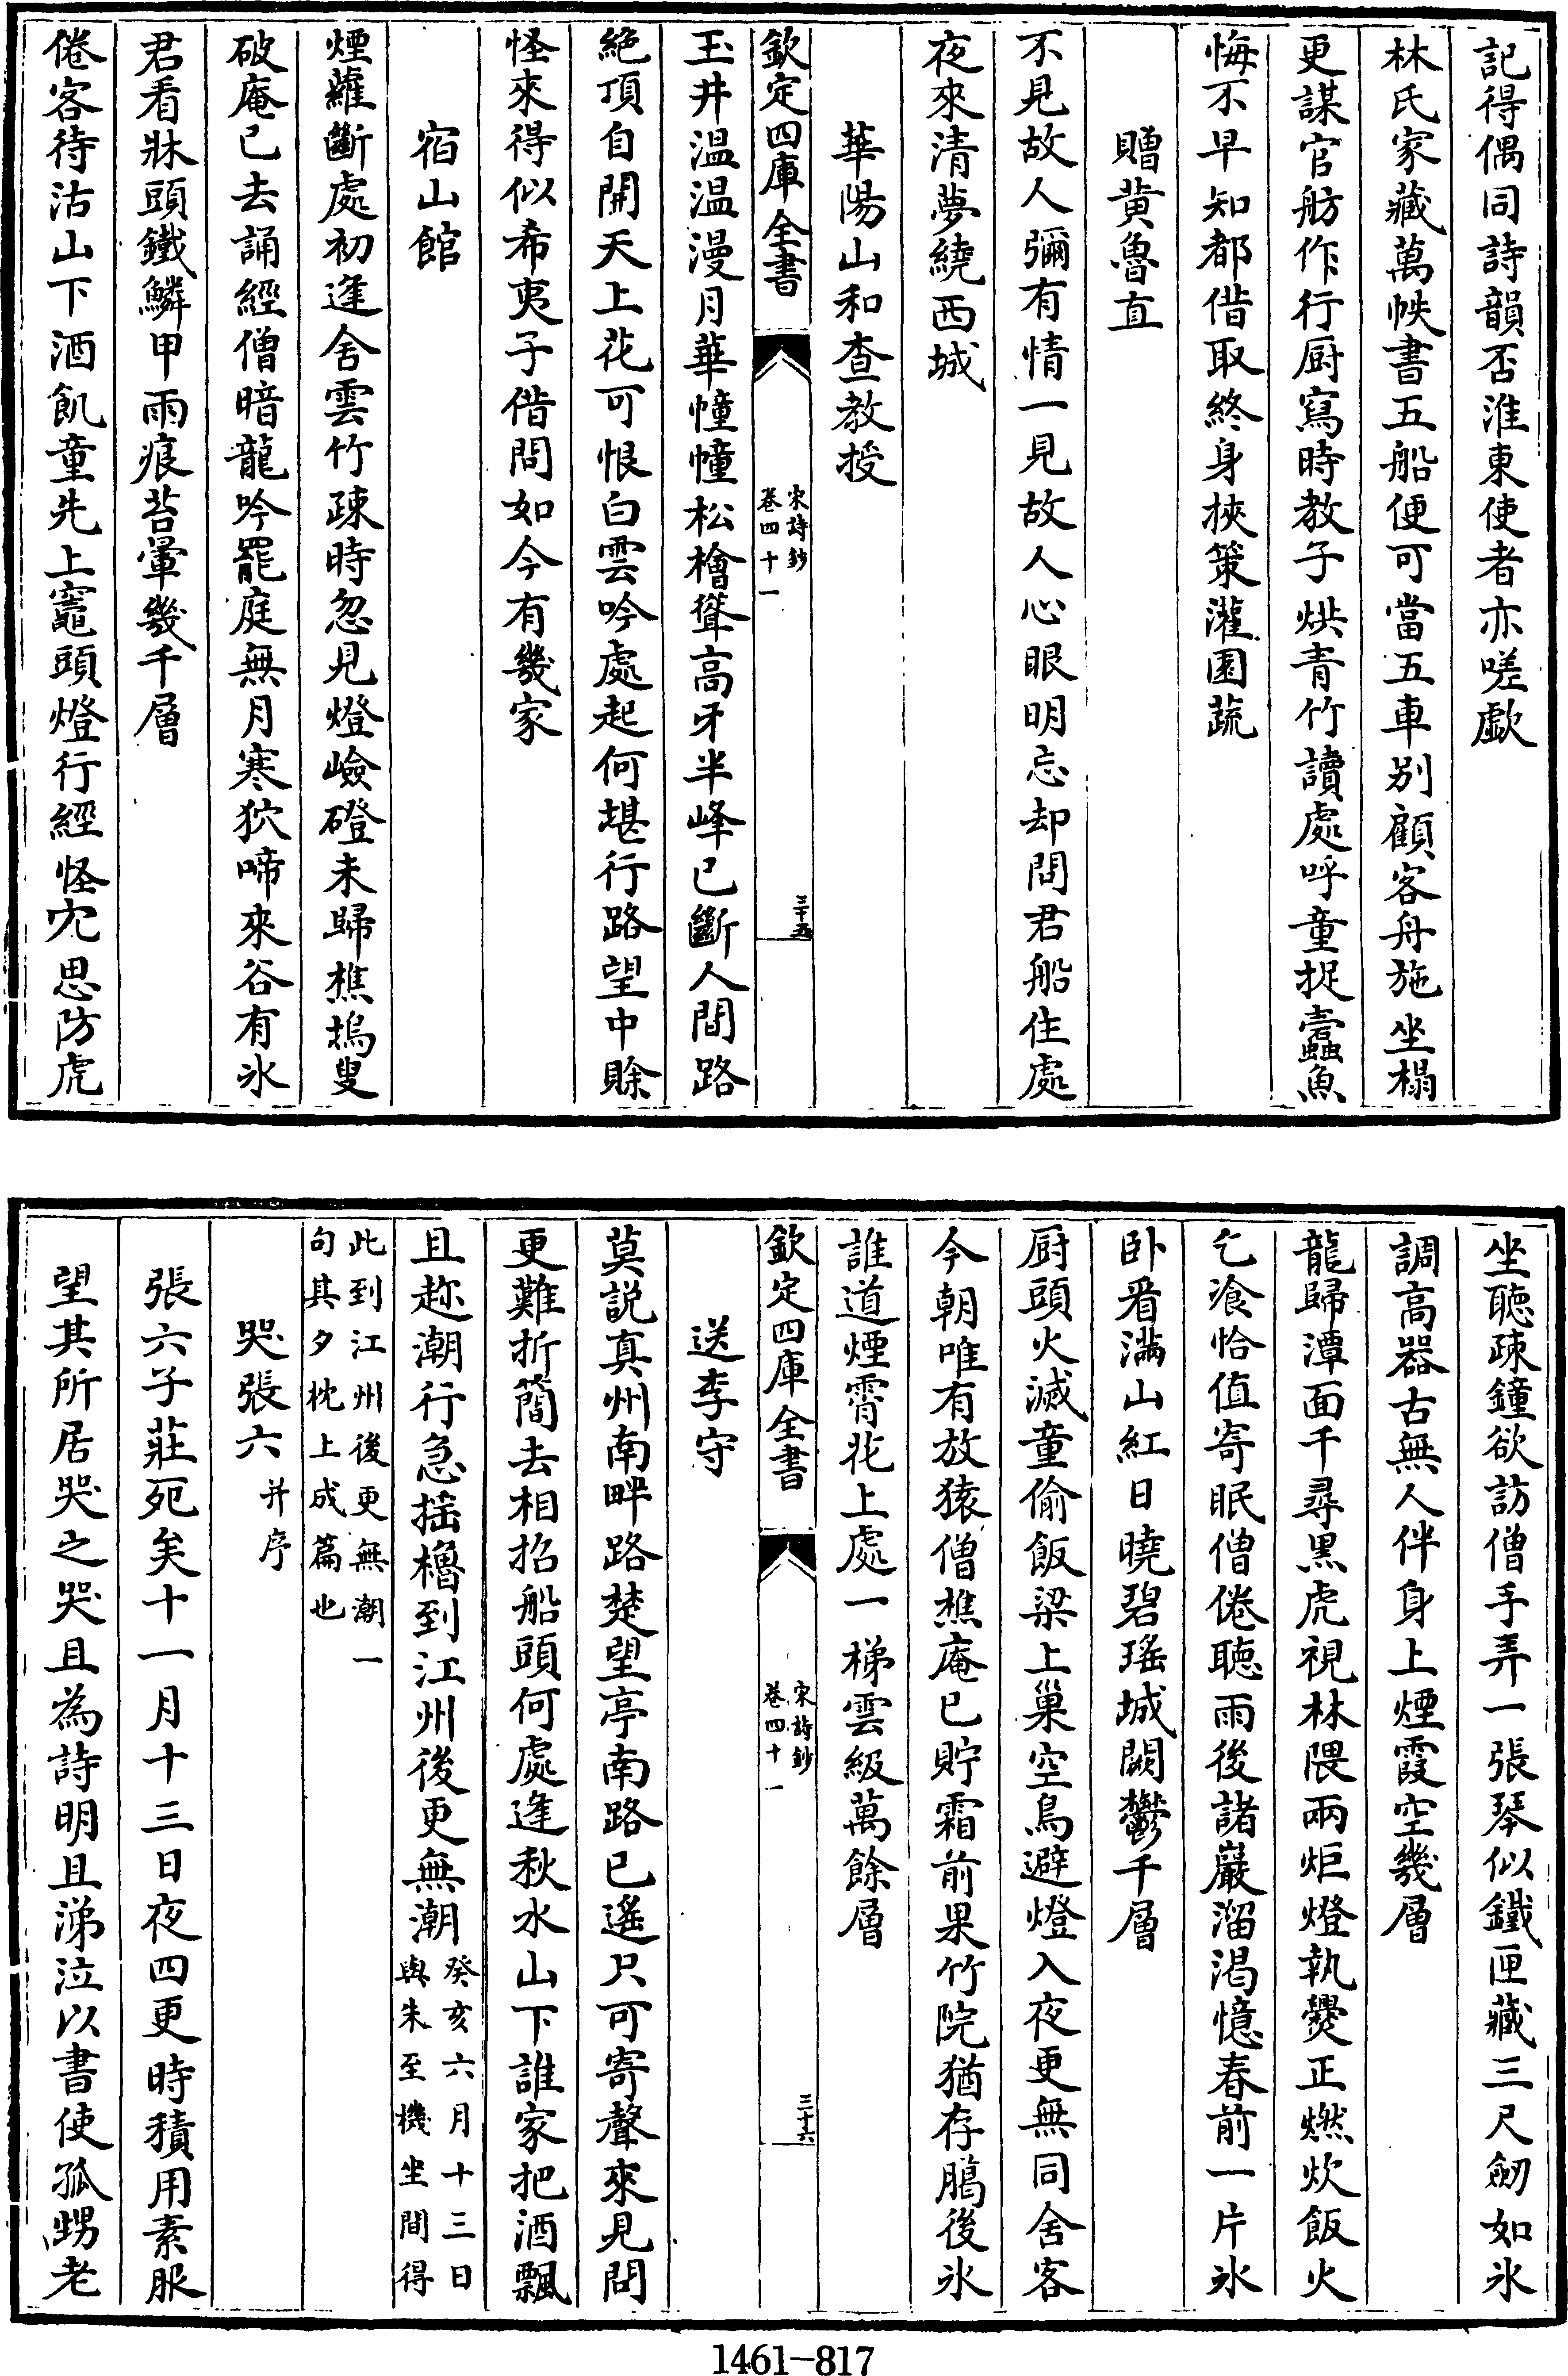 記得偶同詩韻否淮東使者亦嗟歔
林氏家藏萬帙書五船便可當五車别顧客舟施坐榻
更謀官舫作行厨寫時教子烘青竹讀處呼童捉蠧魚
悔不早知都借取終身挾策灌園蔬
贈黄魯直
不見故人彌有情一見故人心眼明忘却問君船住處
夜來清夢繞西城
華陽山和查教授
欽定四庫全書
宋詩鈔
卷四十一
三十五
玉井温温漫月華幢幢松檜聳高牙半峰已斷人間路
絶頂自開天上花可恨白雲吟處起何堪行路望中賖
怪來得似希夷子借問如今有幾家
宿山館
煙蘿斷處初逢舍雲竹疎時忽見燈嶮磴未歸樵塢叟
破庵已去誦經僧暗龍吟罷庭無月寒狖啼來谷有氷
君看牀頭鐵鱗甲雨痕苔暈幾千層
倦客待沽山下酒飢童先上竈頭燈行經怪穴思防虎
坐聴疎鐘欲訪僧手弄一張琴似鐵匣藏三尺劒如氷
調高器古無人伴身上煙霞空幾層
龍歸潭面千尋黒虎視林隈兩炬燈執爨正燃炊飯火
乞飡恰值寄眠僧倦聴雨後諸巖溜渇憶春前一片氷
卧看滿山紅日曉碧瑤城闕鬱千層
厨頭火滅童偷飯梁上巢空鳥避燈入夜更無同舍客
今朝唯有放猿僧樵庵已貯霜前果竹院猶存臈後氷
誰道煙霄花上處一梯雲級萬餘層
欽定四庫全書
宋詩鈔
卷四十一
三十六
送李守
莫説真州南畔路楚望亭南路已遙只可寄聲來見問
更難折簡去相招船頭何處逢秋水山下誰家把酒飄
且趂潮行急揺櫓到江州後更無潮
癸亥六月十三日
與朱至機坐間得
此到江州後更無潮一
句其夕枕上成篇也
哭張六
并序
張六子莊死矣十一月十三日夜四更時積用素服
望其所居哭之哭且為詩明且涕泣以書使孤甥老
1461—817